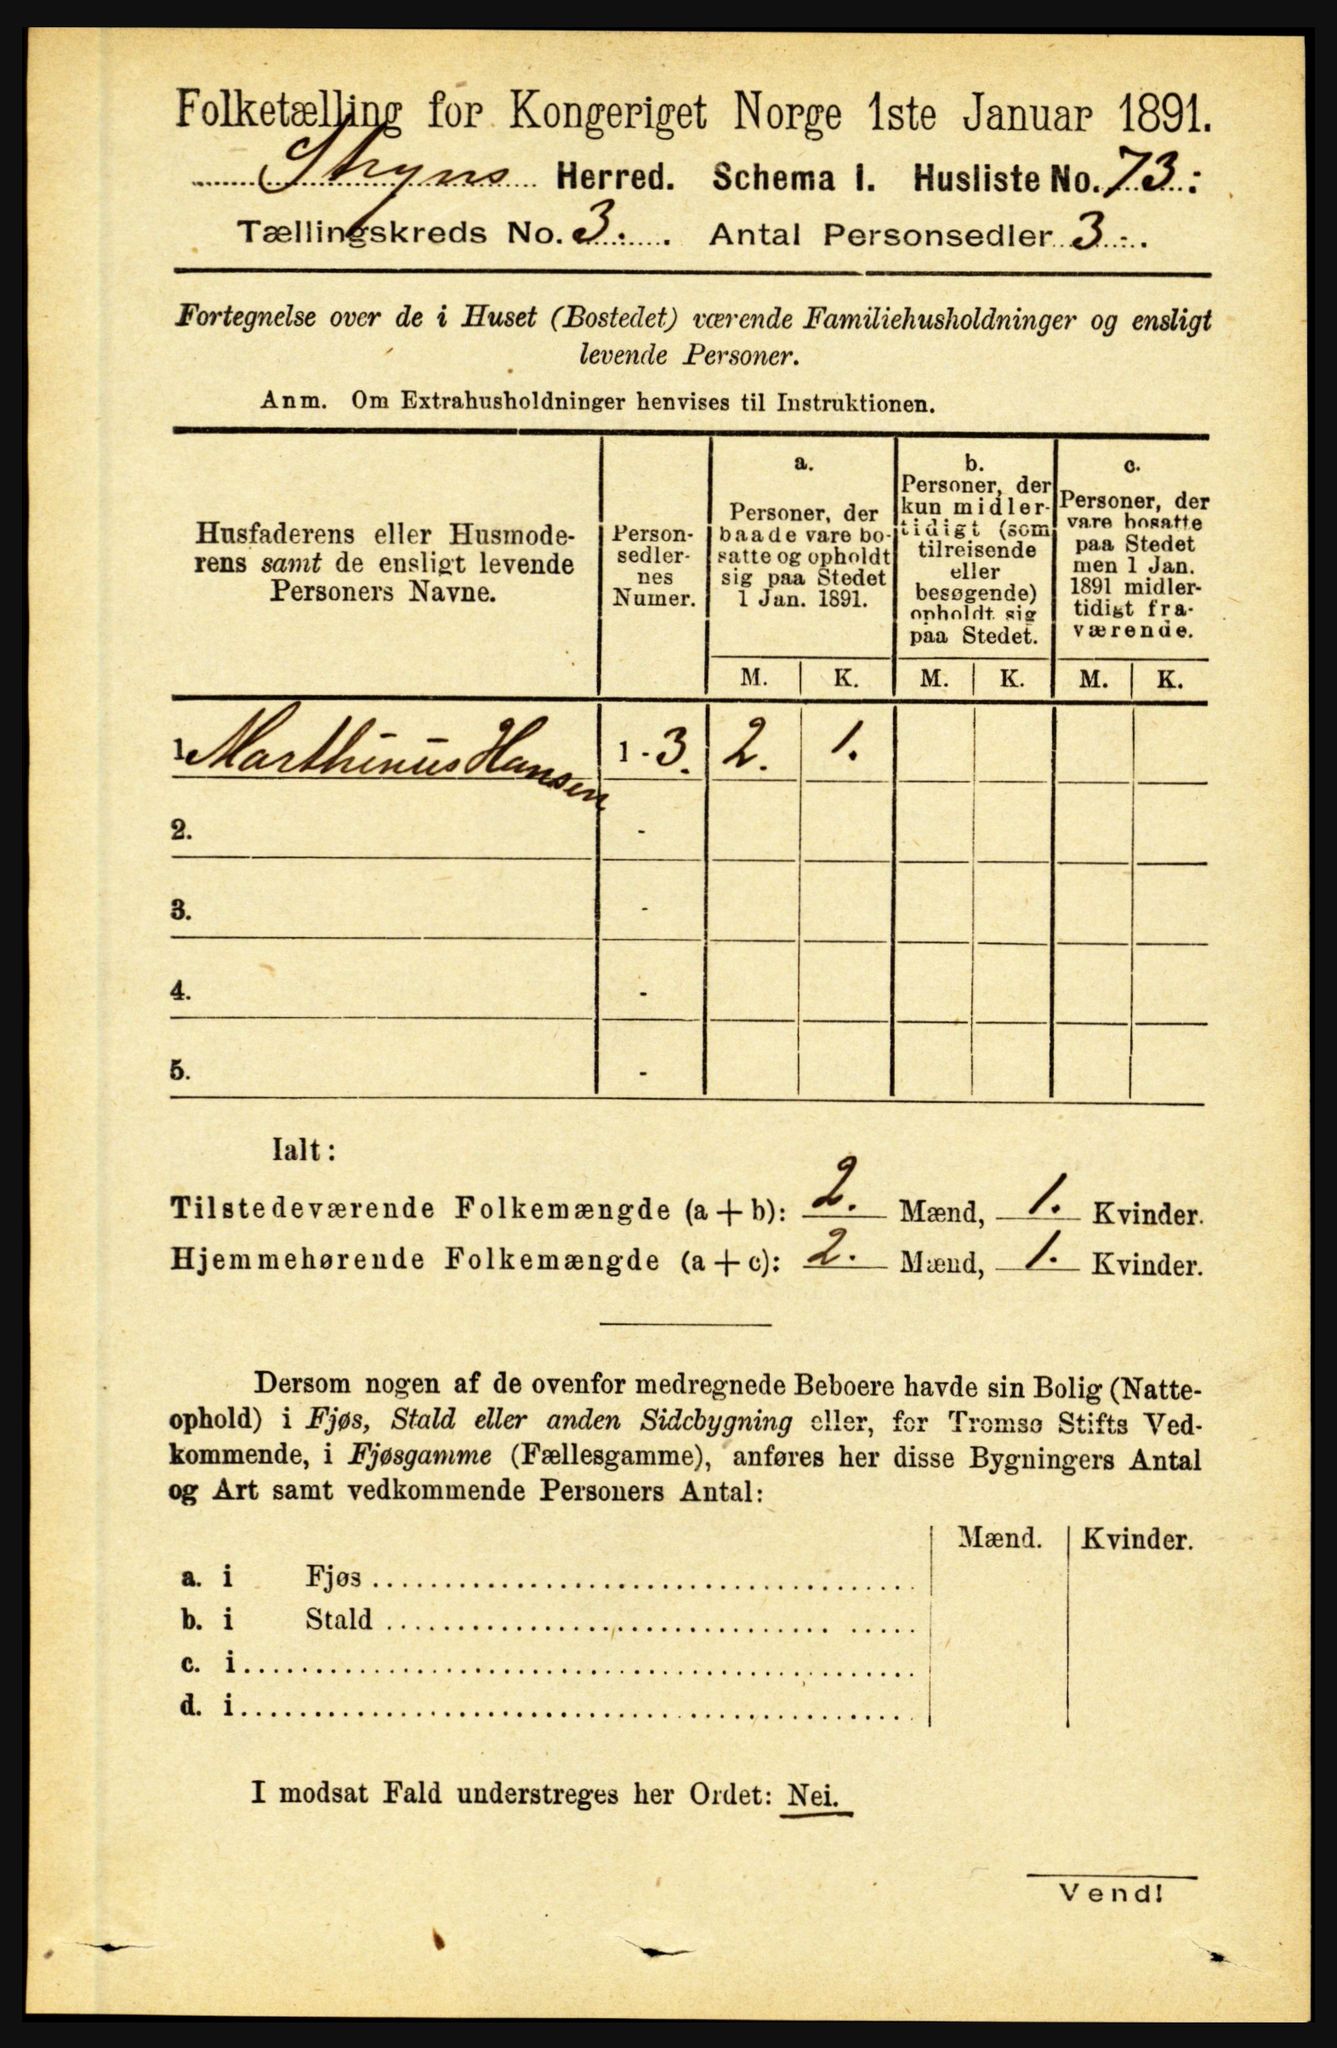 Folketælling for Kongeriget Norge 1ste Januar 1891.
Stryns Herred. Schema I. Husliste No. 73.
Tællingskreds No. 3. Antal Personsedler 3.
Fortegnelse over de i Huset (Bostedet) værende Familiehusholdninger og ensligt
levende Personer.
Anm. Om Extrahusholdninger henvises til Instruktionen.
Husfaderens eller Husmode-
rens samt de ensligt levende
Personers Navne.
Person-
sedler-
nes
Numer.
a.
Personer, der
baade vare bo-
satte og opholdt
sig paa Stedet
1 Jan. 1891.
b.
Personer, der
kun midler-
tidigt (som
tilreisende
eller
besøgende)
opholdt sig
paa Stedet.
c.
Personer, der
vare bosatte
paa Stedet
men 1 Jan.
1891 midler-
tidigt fra-
værende.
M. K. M. K. M. K.
1. Marthinus Hansen 1 - 3. 2. 1.
2. -
3. -
4. -
5. -
Ialt:
Tilstedeværende Folkemængde (a + b): 2. Mænd, 1. Kvinder.
Hjemmehørende Folkemængde (a + c): 2. Mænd, 1. Kvinder.
Dersom nogen af de ovenfor medregnede Beboere havde sin Bolig (Natte-
ophold) i Fjøs, Stald eller anden Sidebygning eller, for Tromsø Stifts Ved-
kommende, i Fjøsgamme (Fællesgamme), anføres her disse Bygningers Antal
og Art samt vedkommende Personers Antal:
Mænd. Kvinder.
a. i Fjøs
b. i Stald
c. i
d. i
I modsat Fald understreges her Ordet: Nei.
Vend!